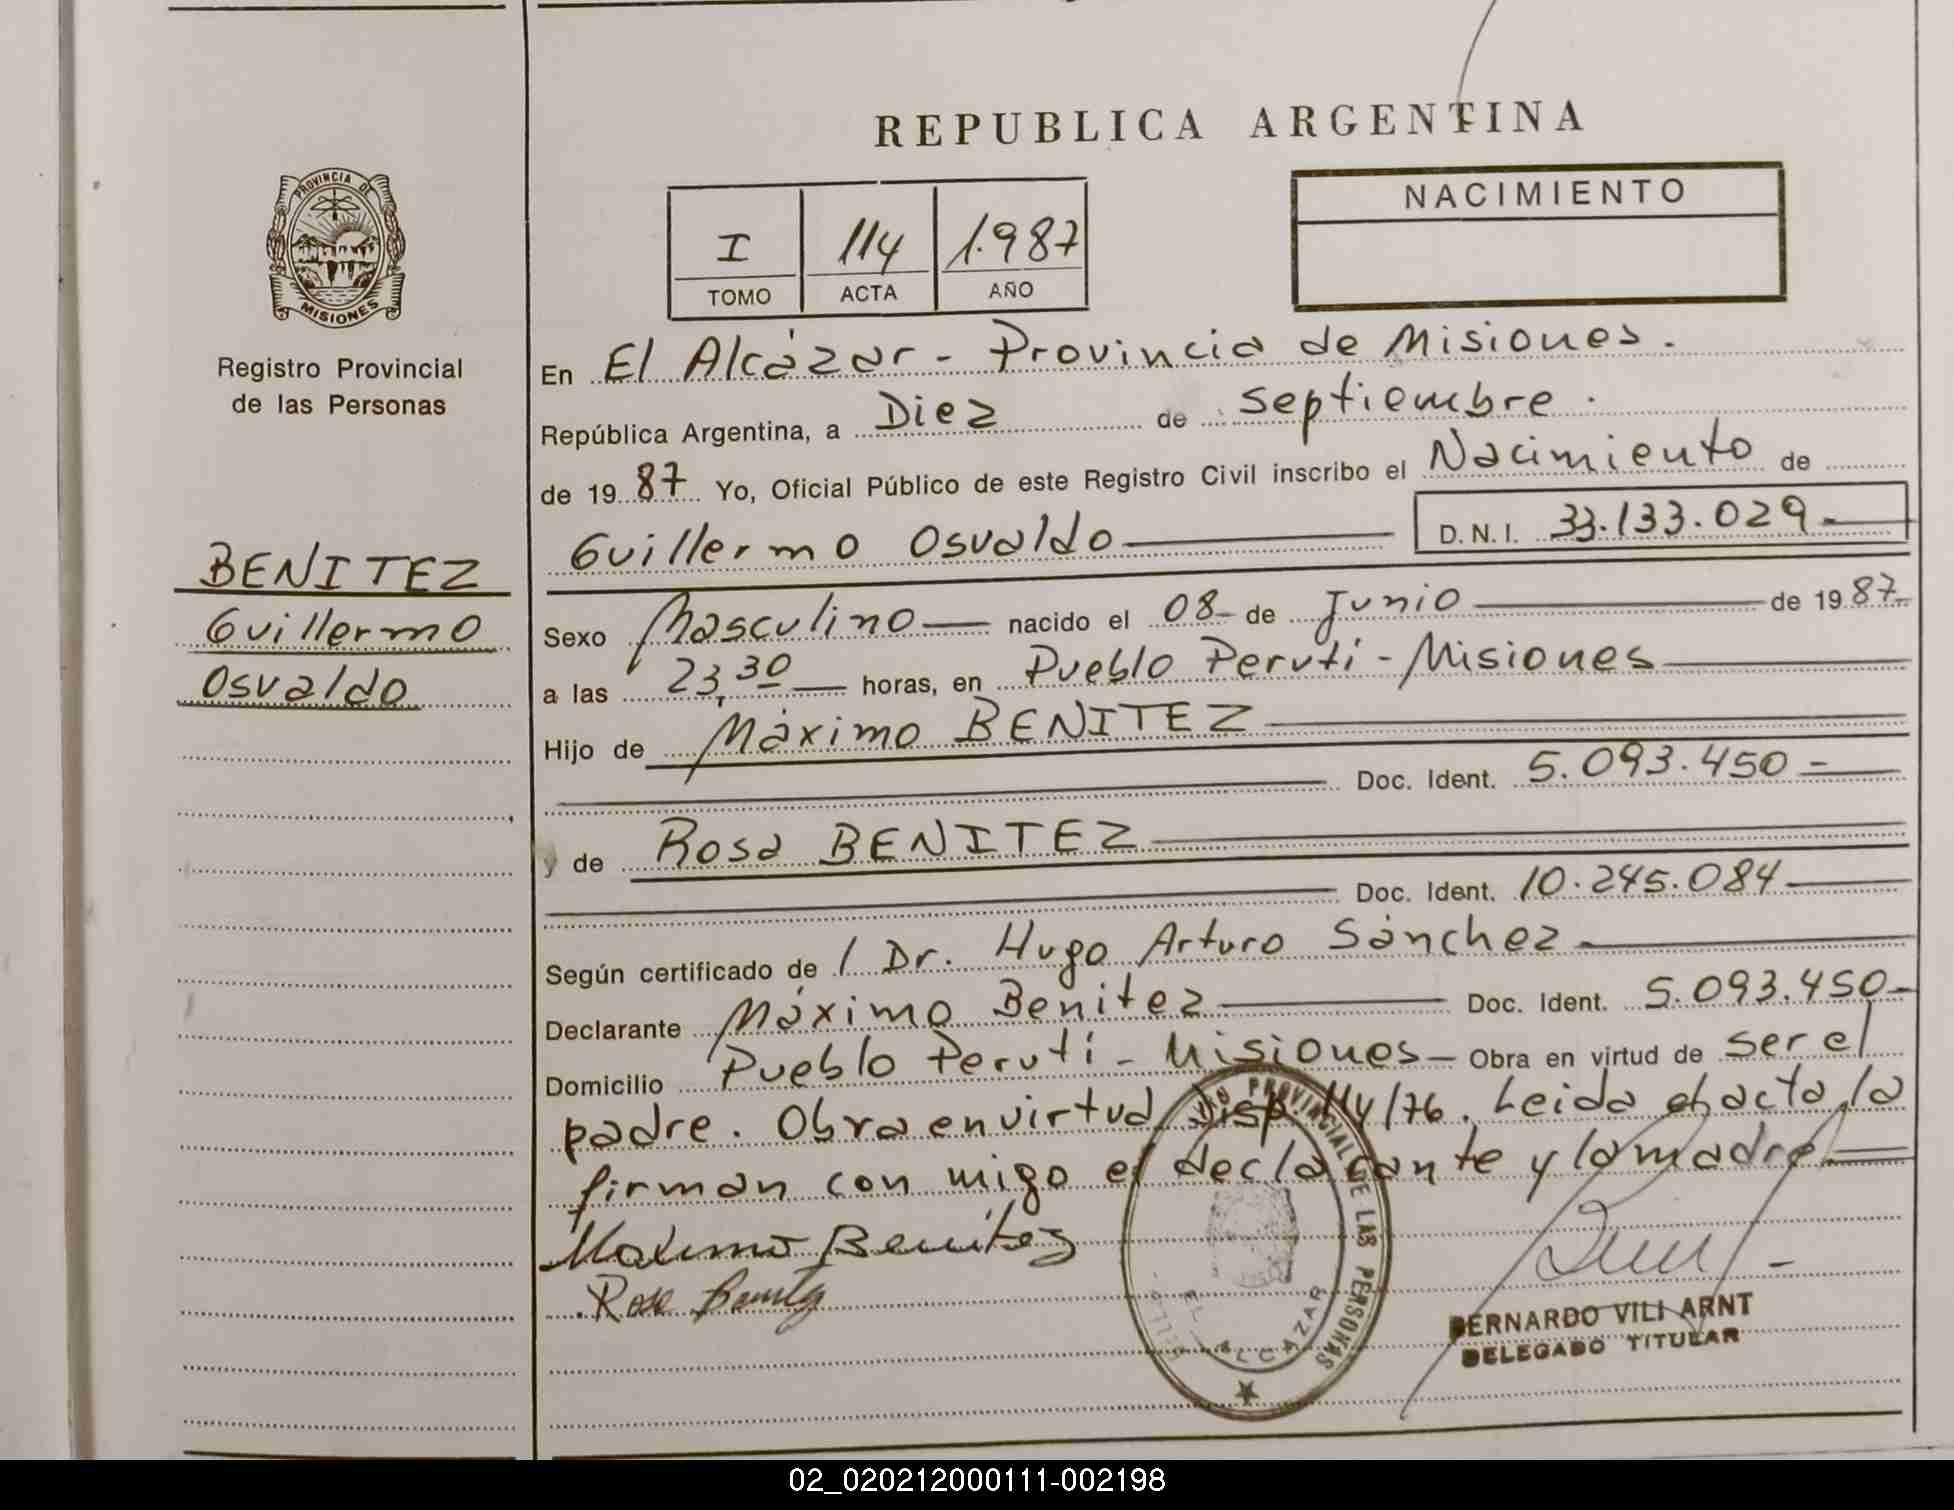 REPUBLICA ARGENTINA
PROVINCIA DE
MISIONES
Registro Provincial
de las Personas
I 114 1.987
TOMO ACTA AÑO
NACIMIENTO
BENITEZ
Guillermo
Osvaldo
En El Alcázar - Provincia de Misiones.
República Argentina, a Diez de septiembre.
de 19 87 Yo, Oficial Público de este Registro Civil inscribo el Nacimiento de
Guillermo Osvaldo D.N.I. 33.133.029-
Sexo Masculino nacido el 08 de Junio de 1987
a las 23,30 horas, en Pueblo Perutí - Misiones
Hijo de Máximo BENITEZ
Doc. Ident. 5.093.450-
y de Rosa BENITEZ
Doc. Ident. 10.245.084
Según certificado de / Dr. Hugo Arturo Sánchez
Declarante Máximo Benitez Doc. Ident. 5.093.450-
Domicilio Pueblo Perutí - Misiones Obra en virtud de ser el
padre. Obra en virtud Disp. 114/76. Leida el acta, la
firman con migo el declarante y la madre
Maximo Benitez
Rosa Benitez
PROVINCIAL DE LAS PERSONAS
EL ALCAZAR
BERNARDO VILI ARNT
DELEGADO TITULAR
02_020212000111-002198